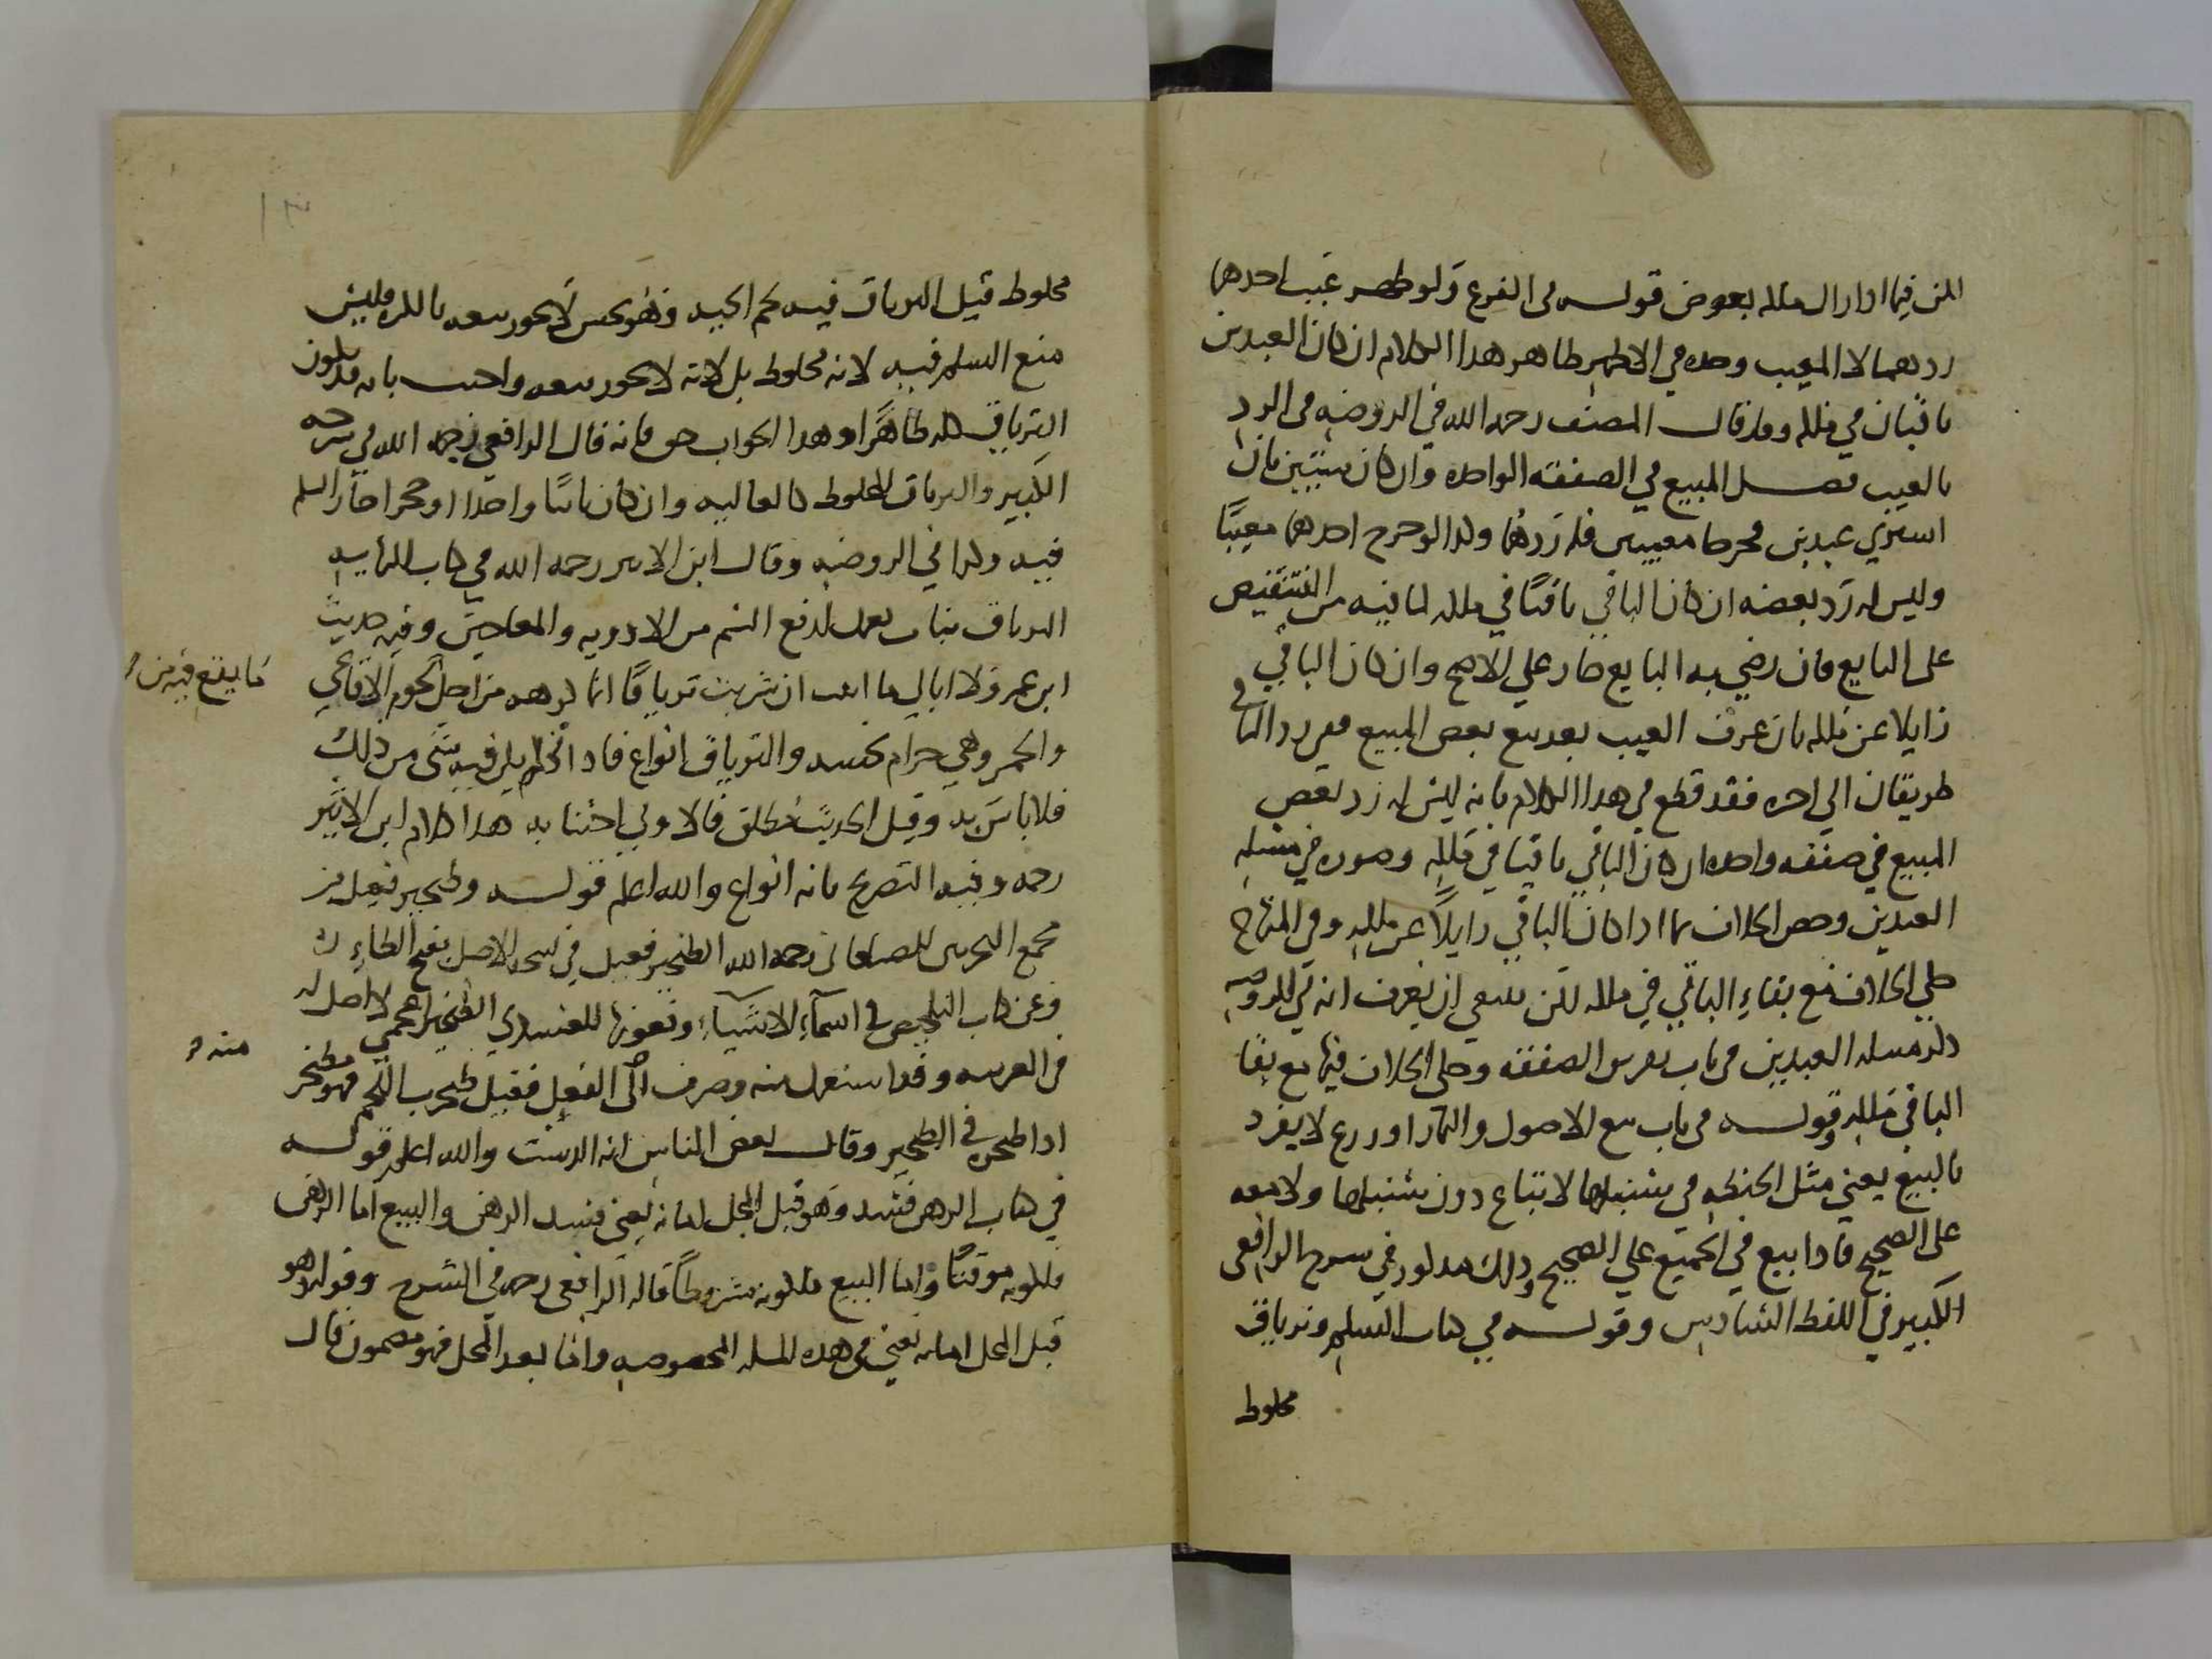 المتن فيما اذا زال ملكه بعوض قوله في الفرع ولو ظهر عيب احدهما
ردهما لا المعيب وحده في الاظهر ظاهر هذا الكلام ان كان العبدين
باقيان في ملكه وقد قال المصنف رحمه الله في الروضة في الرد
بالعيب فصل المبيع في الصفقة الواحدة وان كان شيئين بان
اشتري عبدين فخرجا معيبين فله ردهما وكذا لو خرج احدهما معيبًا
وليس له رد بعضه ان كان الباقي باقيًا في ملكه لما فيه من التنقيص
على البايع فان رضي به البايع جاز علي الاصح وان كان الباقي
زايلا عن ملكه بان عرف العيب بعد بيع بعض المبيع ففي رد الباقي
طريقان الي اخره فقد قطع في هذا الكلام بانه ليس له رد بعض
المبيع في صفقة واحدة ان كان الباقي باقيا في ملكه وصوره في مسئلة
العبدين وخص الخلاف بما اذا كان الباقي زايلاً عن ملكه وفي المنهاج
حكي الخلاف مع بقاء الباقي في ملكه لكن ينبغي ان يعرف انه في الروضة
ذكر مسئلة العبدين في باب تفريق الصفقة وحكى الخلاف فيها مع بقا
الباقي في ملكه وقوله في باب بيع الاصول والثمار او زرع لا يفرد
بالبيع يعني مثل الحنطة في سنبلها لا تباع دون سنبلها ولا معه
على الصحيح فاذا بيع في الجميع علي الصحيح وذلك مذكور في شرح الرافعي
الكبير في اللفظ السادس وقوله في كتاب السلم وترياق
مخلوط
مخلوط قيل الترياق فيه لحم الحية وهو نجس لا يجوز بيعه بالكلية فليس
منع السلم فيه لانه مخلوط بل لانه لا يجوز بيعه واجيب بانه قد يكون
الترياق كله طاهرًا وهذا الجواب حق فانه قال الرافعي رحمه الله في شرحه
الكبير والترياق المخلوط كالغالية وان كان نباتًا واحدا او حجرا جاز السلم
فيه وكذا في الروضة وقال ابن الاثير رحمه الله في كتاب النهاية
الترياق يعمل لدفع السم من الادوية والمعاجين وفيه حديث
ابن عمر ولا ابالي ما اتيت ان شربت ترياقًا انما كرهه من اجل لحوم الافاعي
ما يقع فيه من
والخمر وهي حرام نجسة والترياق انواع فاذا لم يكن فيه شي من ذلك
فلا باس به وقيل الحديث مطلق فالاولي اجتنابه هذا كلام ابن الاثير
رحمه وفيه التصريح بانه انواع والله اعلم قوله وطنجير فعيل من
مجمع البحرين للصاغاني رحمه الله الطنجير فعيل في نسخة الاصل بفتح الطاء
وعن كتاب التلخيص في اسماء الاشياء ونعوتها للعسكري الطنجير اعجمي لا اصل له
في العربية وقد استعمل منه وصرف الى الفعل فقيل طنجرت اللحم فهو مطنجر
منه
اذا طبخته في الطنجير وقال بعض الناس انه الدست والله اعلم قوله
في كتاب الرهن فسد وهو قبل المحل امانة يعني فسد الرهن والبيع اما الرهن
فلكونه موقتًا واما البيع فلكونه مشروطاً قاله الرافعي رحمه في الشرح وقوله وهو
قبل المحل امانة يعني في هذه المسئلة المخصوصة واما بعد المحل فهو مضمون قال